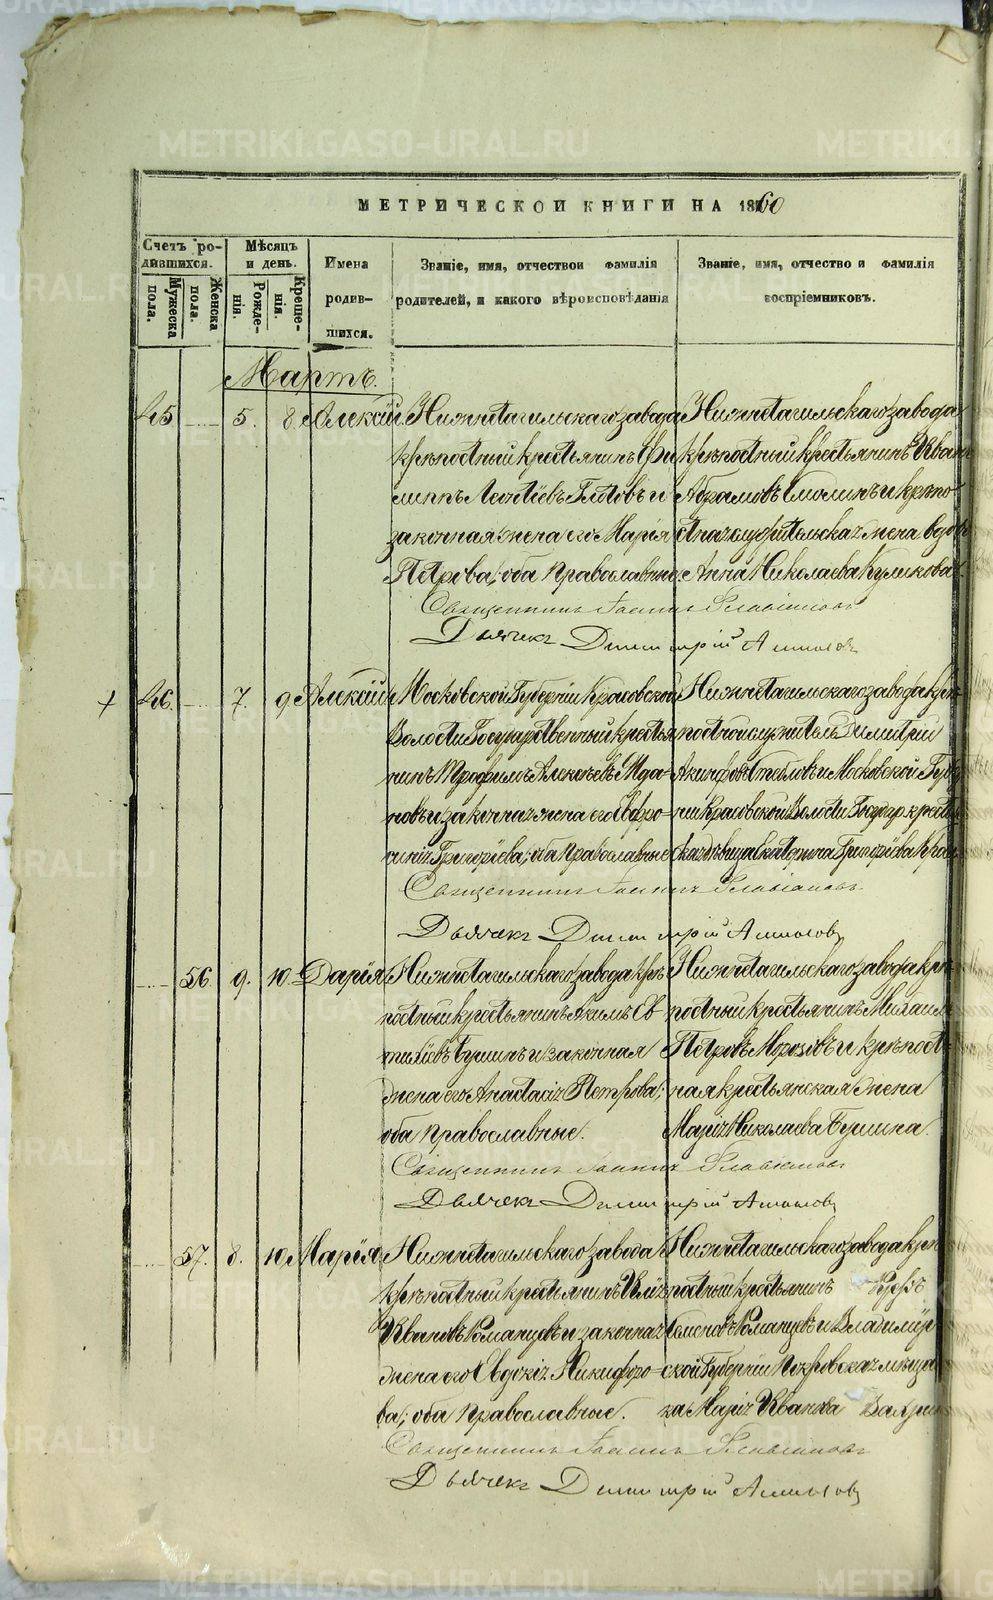 МЕТРИЧЕСКОЙ КНИГИ НА 1860
Счетъ родившихся.
Мужеска пола.
Женска пола.
Мѣсяцъ и день.
Рожденія.
Крещенія.
Имена родившихся.
Званіе, имя, отчество и фамилія родителей, и какого вѣроисповѣданія
Званіе, имя, отчество и фамилія воспріемниковъ.
Мартъ.
45 5. 8. Алексій
Нижнетагильскаго завода
крѣпостный крестьянинъ Фи
липпъ Леонтіевъ и
законная жена его Марія
Петрова; оба Православные.
Нижнетагильскаго завода
крѣпостный крестьянинъ Иванъ
Абрамовъ Смолинъ и крѣпо
стная служительская жена вдова
Анна Николаева Куликова.
Священникъ Іоаннъ
Дьячекъ Димитрій
46. 7. 9 Алексій
Московской Губерніи
Волости Государственный крестья
нинъ Трофимъ Алексѣевъ Жда
новъ и законная жена его Евфро
синія Григоріева; оба Православные
Нижнетагильскаго завода крѣ
постной служитель Димитрій
и Московской Губер
ніи Волости Государ. крестьян
ская дѣвица Екатерина Григоріева
Священникъ Іоаннъ
Дьячекъ Димитрій
56 9. 10 Дарія
Нижнетагильскаго завода крѣ
постный крестьянинъ Акимъ Ев
Бушинъ и законная
жена его Анастасія Петрова;
оба Православные.
Нижнетагильскаго завода крѣ
постный крестьянинъ Михаилъ
Петровъ Морозовъ и крѣпост
ная крестьянская жена
Марія Николаева Бушина.
Священникъ Іоаннъ
Дьячекъ Димитрій
57. 8. 10 Марія
Нижнетагильскаго завода
крѣпостный крестьянинъ Илія
Ивановъ Романцовъ и законная
жена его Евдокія Никифоро
ва; оба Православные.
Нижнетагильскаго завода крѣ
постный крестьянинъ
Семеновъ Романцевъ и Владимір
ской Губерніи Покровская мѣщан
ка Марія Иванова
Священникъ Іоаннъ
Дьячекъ Димитрій
METRIKI.GASO-URAL.RU